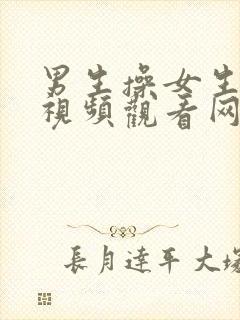 男生操女生
視頻觀看网
長月達平大塚